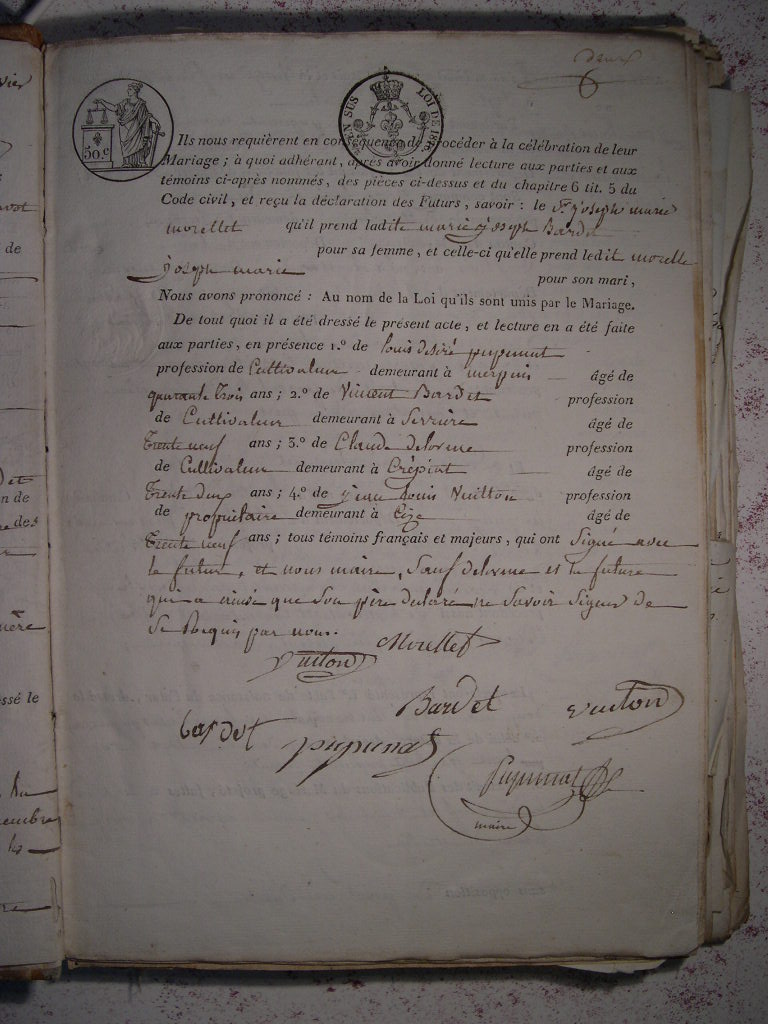 deux
6
30.c
EN SUS
LOI DE 1816
Ils nous requièrent en conséquence de procéder à la célébration de leur
Mariage ; à quoi adhérant, après avoir donné lecture aux parties et aux
témoins ci-après nommés, des pièces ci-dessus et du chapitre 6 tit. 5 du
Code civil, et reçu la déclaration des Futurs, savoir : le Sr. joseph marie
morellet qu'il prend ladite marie joseph Bardet
pour sa femme, et celle-ci qu'elle prend ledit morelle
joseph marie pour son mari,
Nous avons prononcé : Au nom de la Loi qu'ils sont unis par le Mariage.
De tout quoi il a été dressé le présent acte, et lecture en a été faite
aux parties, en présence 1.º de louis desiré pupunat
profession de Cultivateur demeurant à merpuis âgé de
quarante trois ans ; 2.º de Vincent Bardet profession
de Cultivateur demeurant à Serriere âgé de
trente neuf ans ; 3.º de Claude delorme profession
de Cultivateur demeurant à Crépiat âgé de
trente deux ans ; 4.º de jean Louis Vuitton profession
de propriétaire demeurant à Cize âgé de
trente neuf ans ; tous témoins français et majeurs, qui ont signé avec
le futur, et nous maire, sauf delorme et la future
qui a ainsi que son père declaré ne savoir signer de
ce Requis par nous.
Morellet
Vuiton
Bardet
Vuiton
bardet
pupunat
pupunat
maire